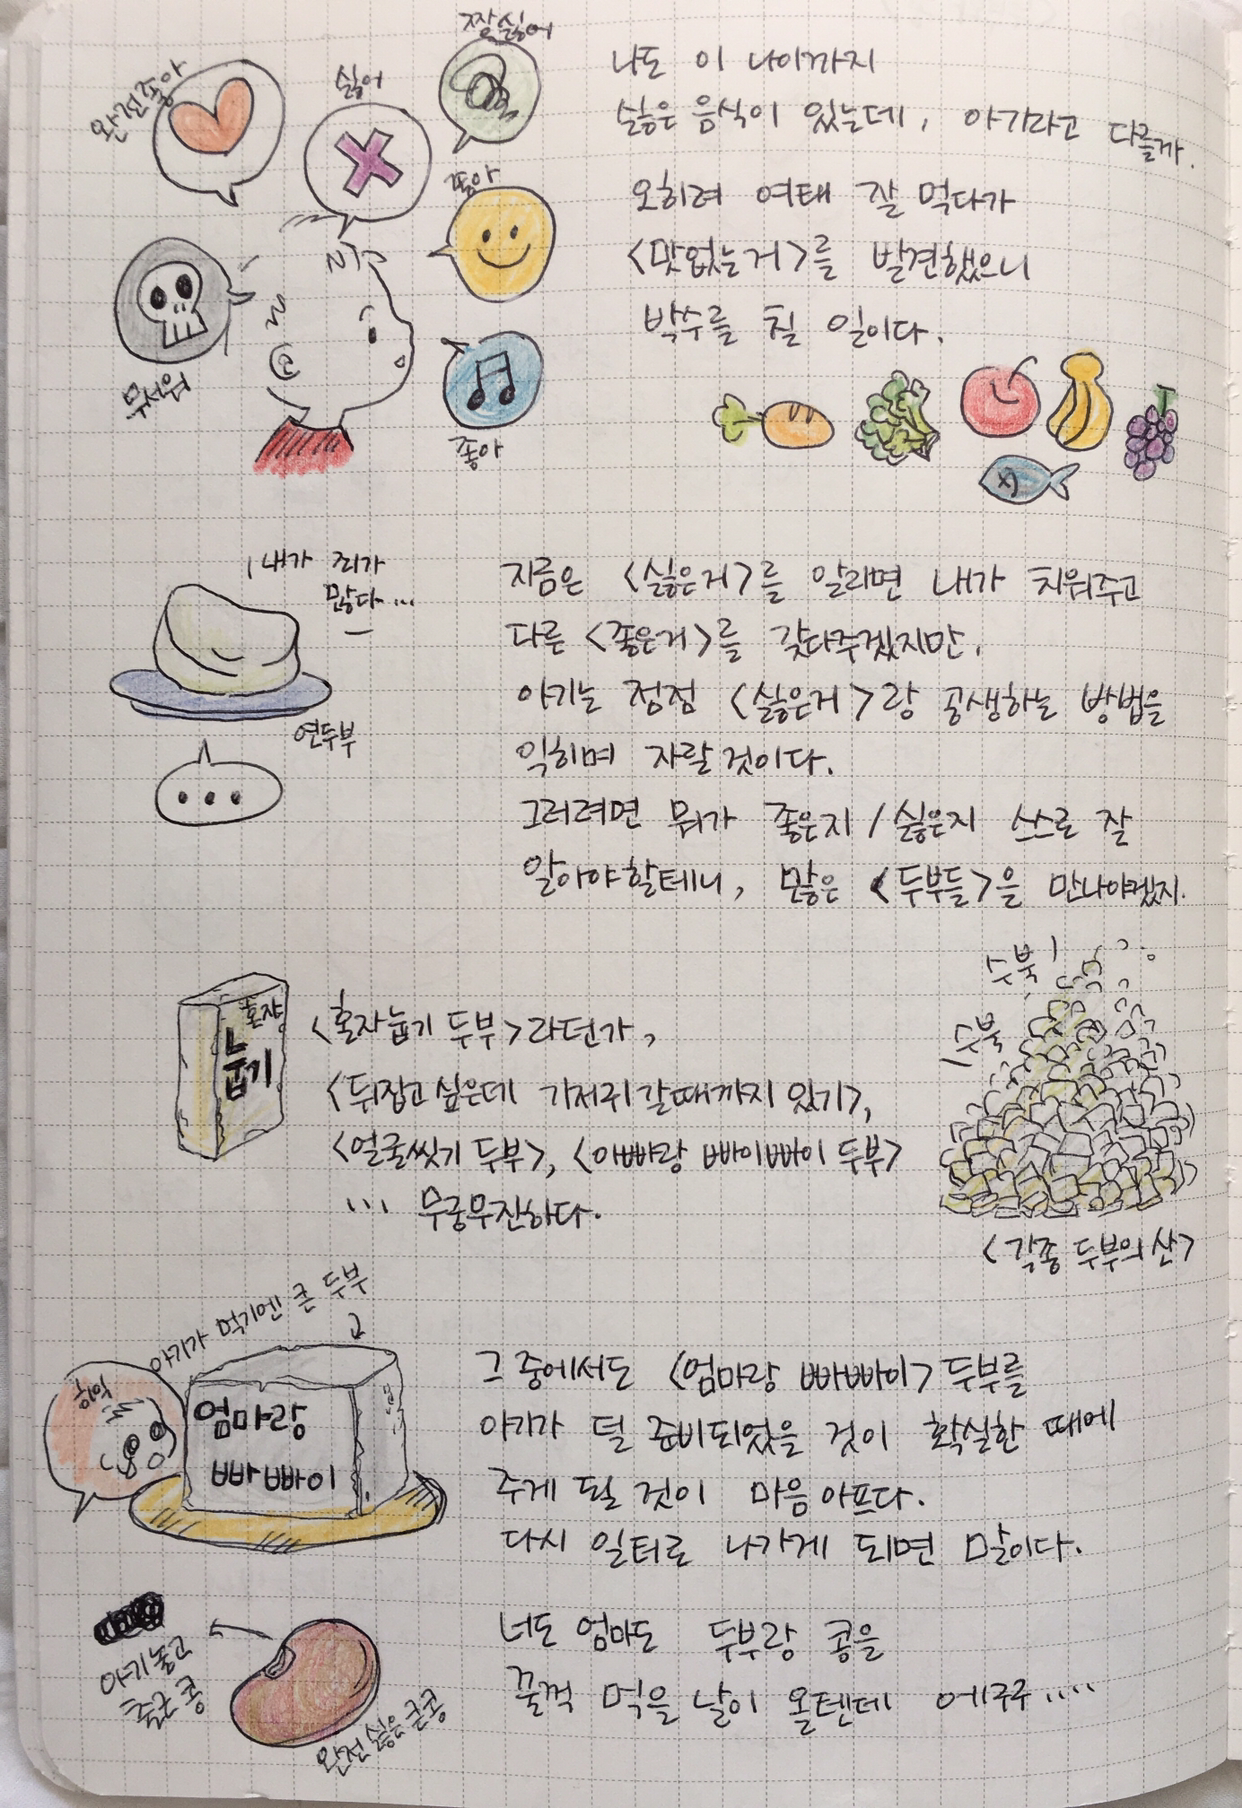 짱싫어
완전좋아
싫어
좋아
무서워
좋아
나도 이 나이까지
싫은 음식이 있는데, 아기라고 다를까.
오히려 여태 잘 먹다가
<맛없는거>를 발견했으니
박수를 칠 일이다.
내가 죄가
많다...
연두부
...
지금은 <싫은거>를 알리면 내가 치워주고
다른 <좋은거>를 갖다주겠지만,
아기는 점점 <싫은거>랑 공생하는 방법을
익히며 자랄것이다.
그러려면 뭐가 좋은지/싫은지 스스로 잘
알아야할테니, 많은 <두부들>을 만나야겠지.
수북!
수북
혼자
눕기
<혼자눕기 두부>라던가,
<뒤집고싶은데 기저귀갈때까지 있기>,
<얼굴씻기 두부>, <아빠랑 빠이빠이 두부>
... 무궁무진하다.
<각종 두부의 산>
아기가 먹기엔 큰 두부
히익
엄마랑
빠빠이
그 중에서도 <엄마랑 빠빠이> 두부를
아기가 덜 준비되었을 것이 확실한 때에
주게 될 것이 마음아프다.
다시 일터로 나가게 되면 말이다.
아기놓고
출근콩
완전싫은큰콩
너도 엄마도 두부랑 콩을
꿀꺽 먹을 날이 올텐데 에구구....